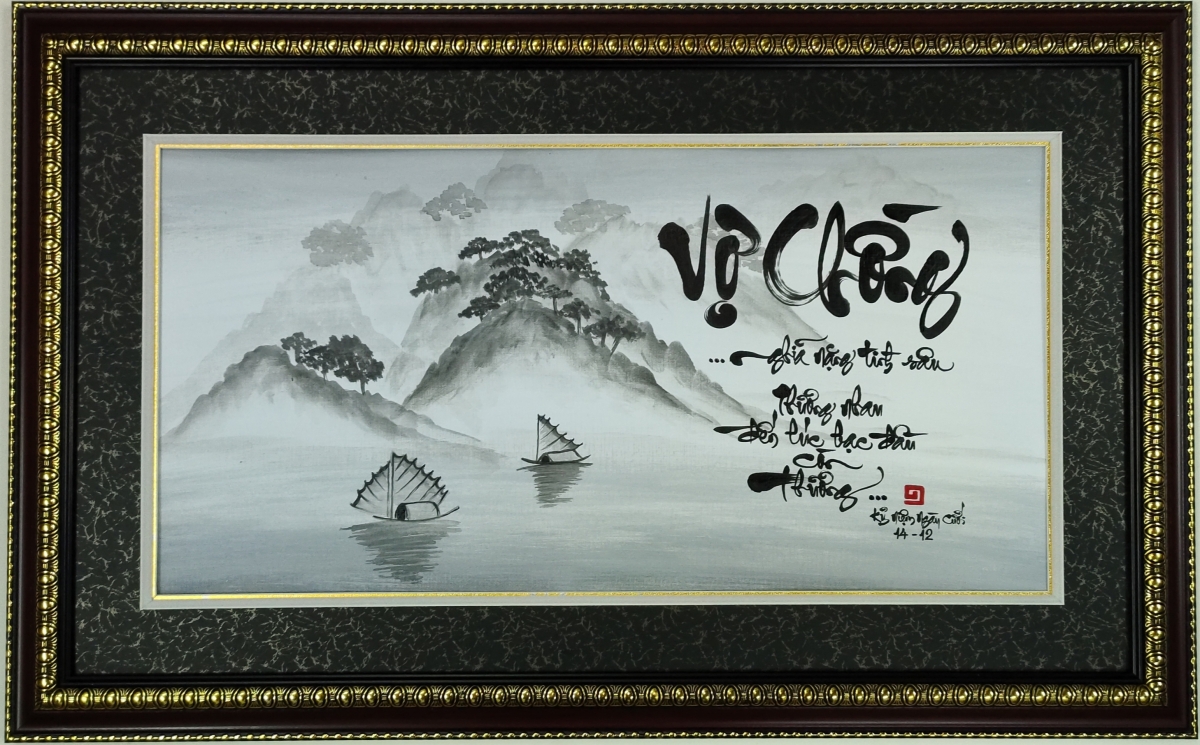 Vợ Chồng
... nghĩa nặng tình sâu
Thương nhau
đến lúc bạc đầu
còn
thương ...
Kỷ niệm ngày cưới
14 - 12